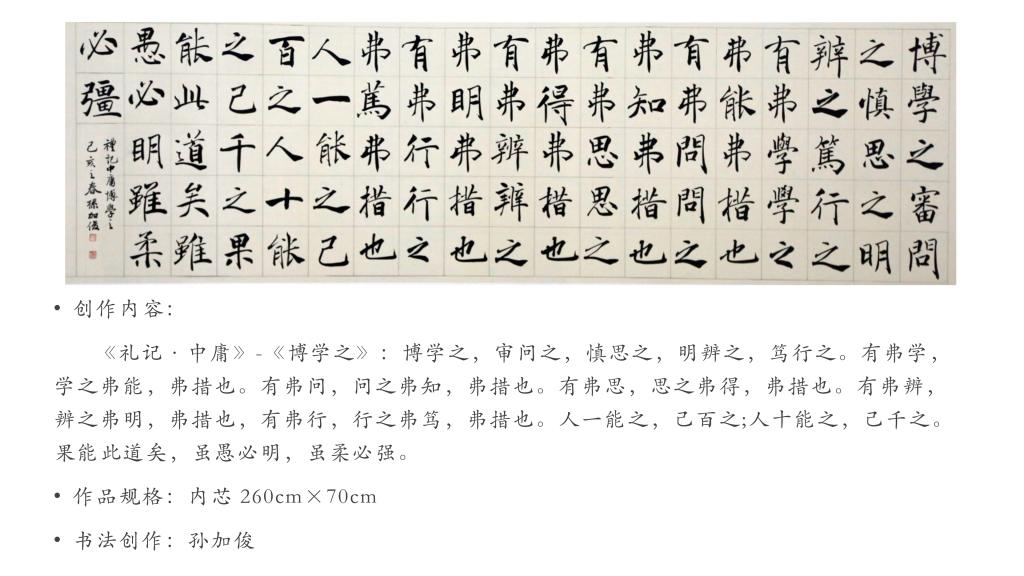 博學之審問
之慎思之明
辨之篤行之
有弗學學之
弗能弗措也
有弗問問之
弗知弗措也
有弗思思之
弗得弗措也
有弗辨辨之
弗明弗措也
有弗行行之
弗篤弗措也
人一能之己
百之人十能
之己千之果
能此道矣雖
愚必明雖柔
必彊
禮記中庸博學之
己亥之春孫加俊
• 创作内容：
《礼记·中庸》-《博学之》：博学之，审问之，慎思之，明辨之，笃行之。有弗学，
学之弗能，弗措也。有弗问，问之弗知，弗措也。有弗思，思之弗得，弗措也。有弗辨，
辨之弗明，弗措也，有弗行，行之弗笃，弗措也。人一能之，己百之;人十能之，己千之。
果能此道矣，虽愚必明，虽柔必强。
• 作品规格：内芯 260cm×70cm
• 书法创作：孙加俊